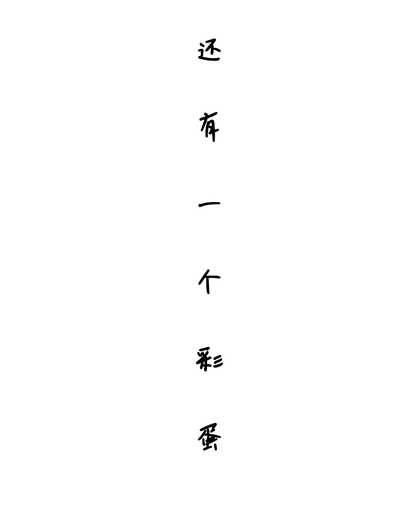 还有一个彩蛋